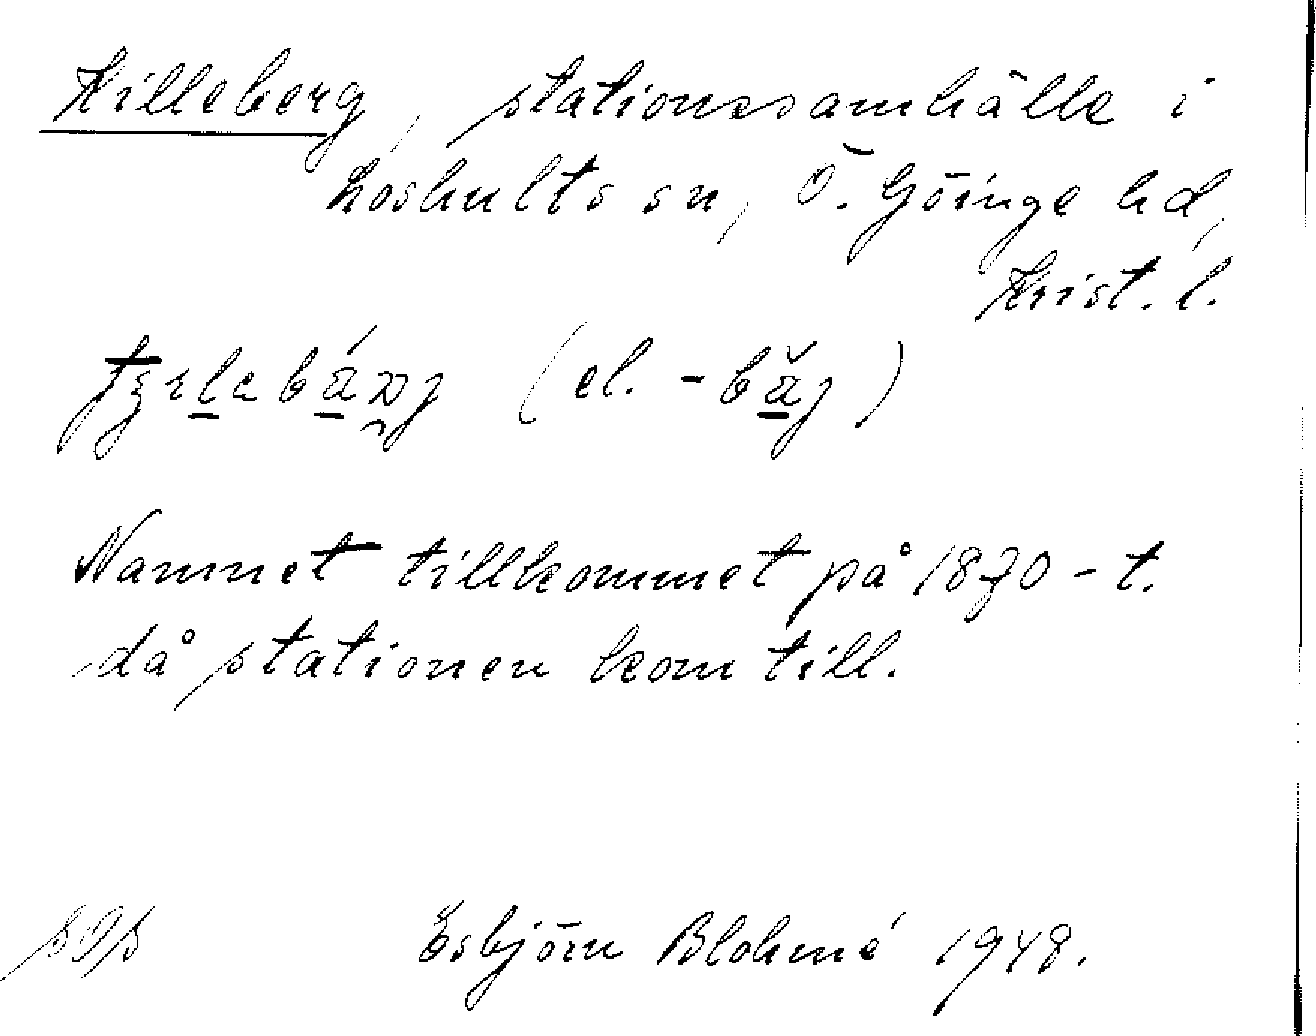 Killeberg, stationssamhälle i
Loshults sn, Ö. Göinge hd,
Krist. l.
(el. -bǎj)
Namnet tillkommet på 1870-t.
då stationen kom till.
Esbjörn Blohmé 1948.